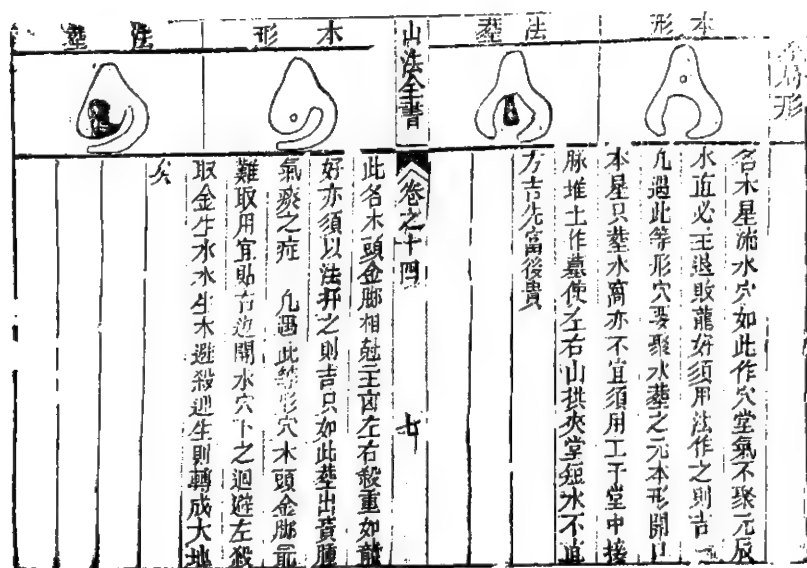 本形
法塟
名木星流水穴如此作穴堂氣不聚元辰
水直必主退敗龍好須用法作之則吉
凡遇此等形穴要聚水塟之元本形開口
本星只塟水窩亦不宜須用工于堂中接
脉堆土作墓使左右山拱夾堂短水不直
方吉先富後貴
山法全書
卷之十四
七
木形
法塟
此名木頭金脚相尅主凶左右殺重如龍
好亦須以法扦之則吉只如此塟出腫
氣之症 凡遇此等形穴木頭金脚最
難取用宜貼右边開水穴下之迴避左殺
取金生水水生木避殺迎生則轉成大地
矣